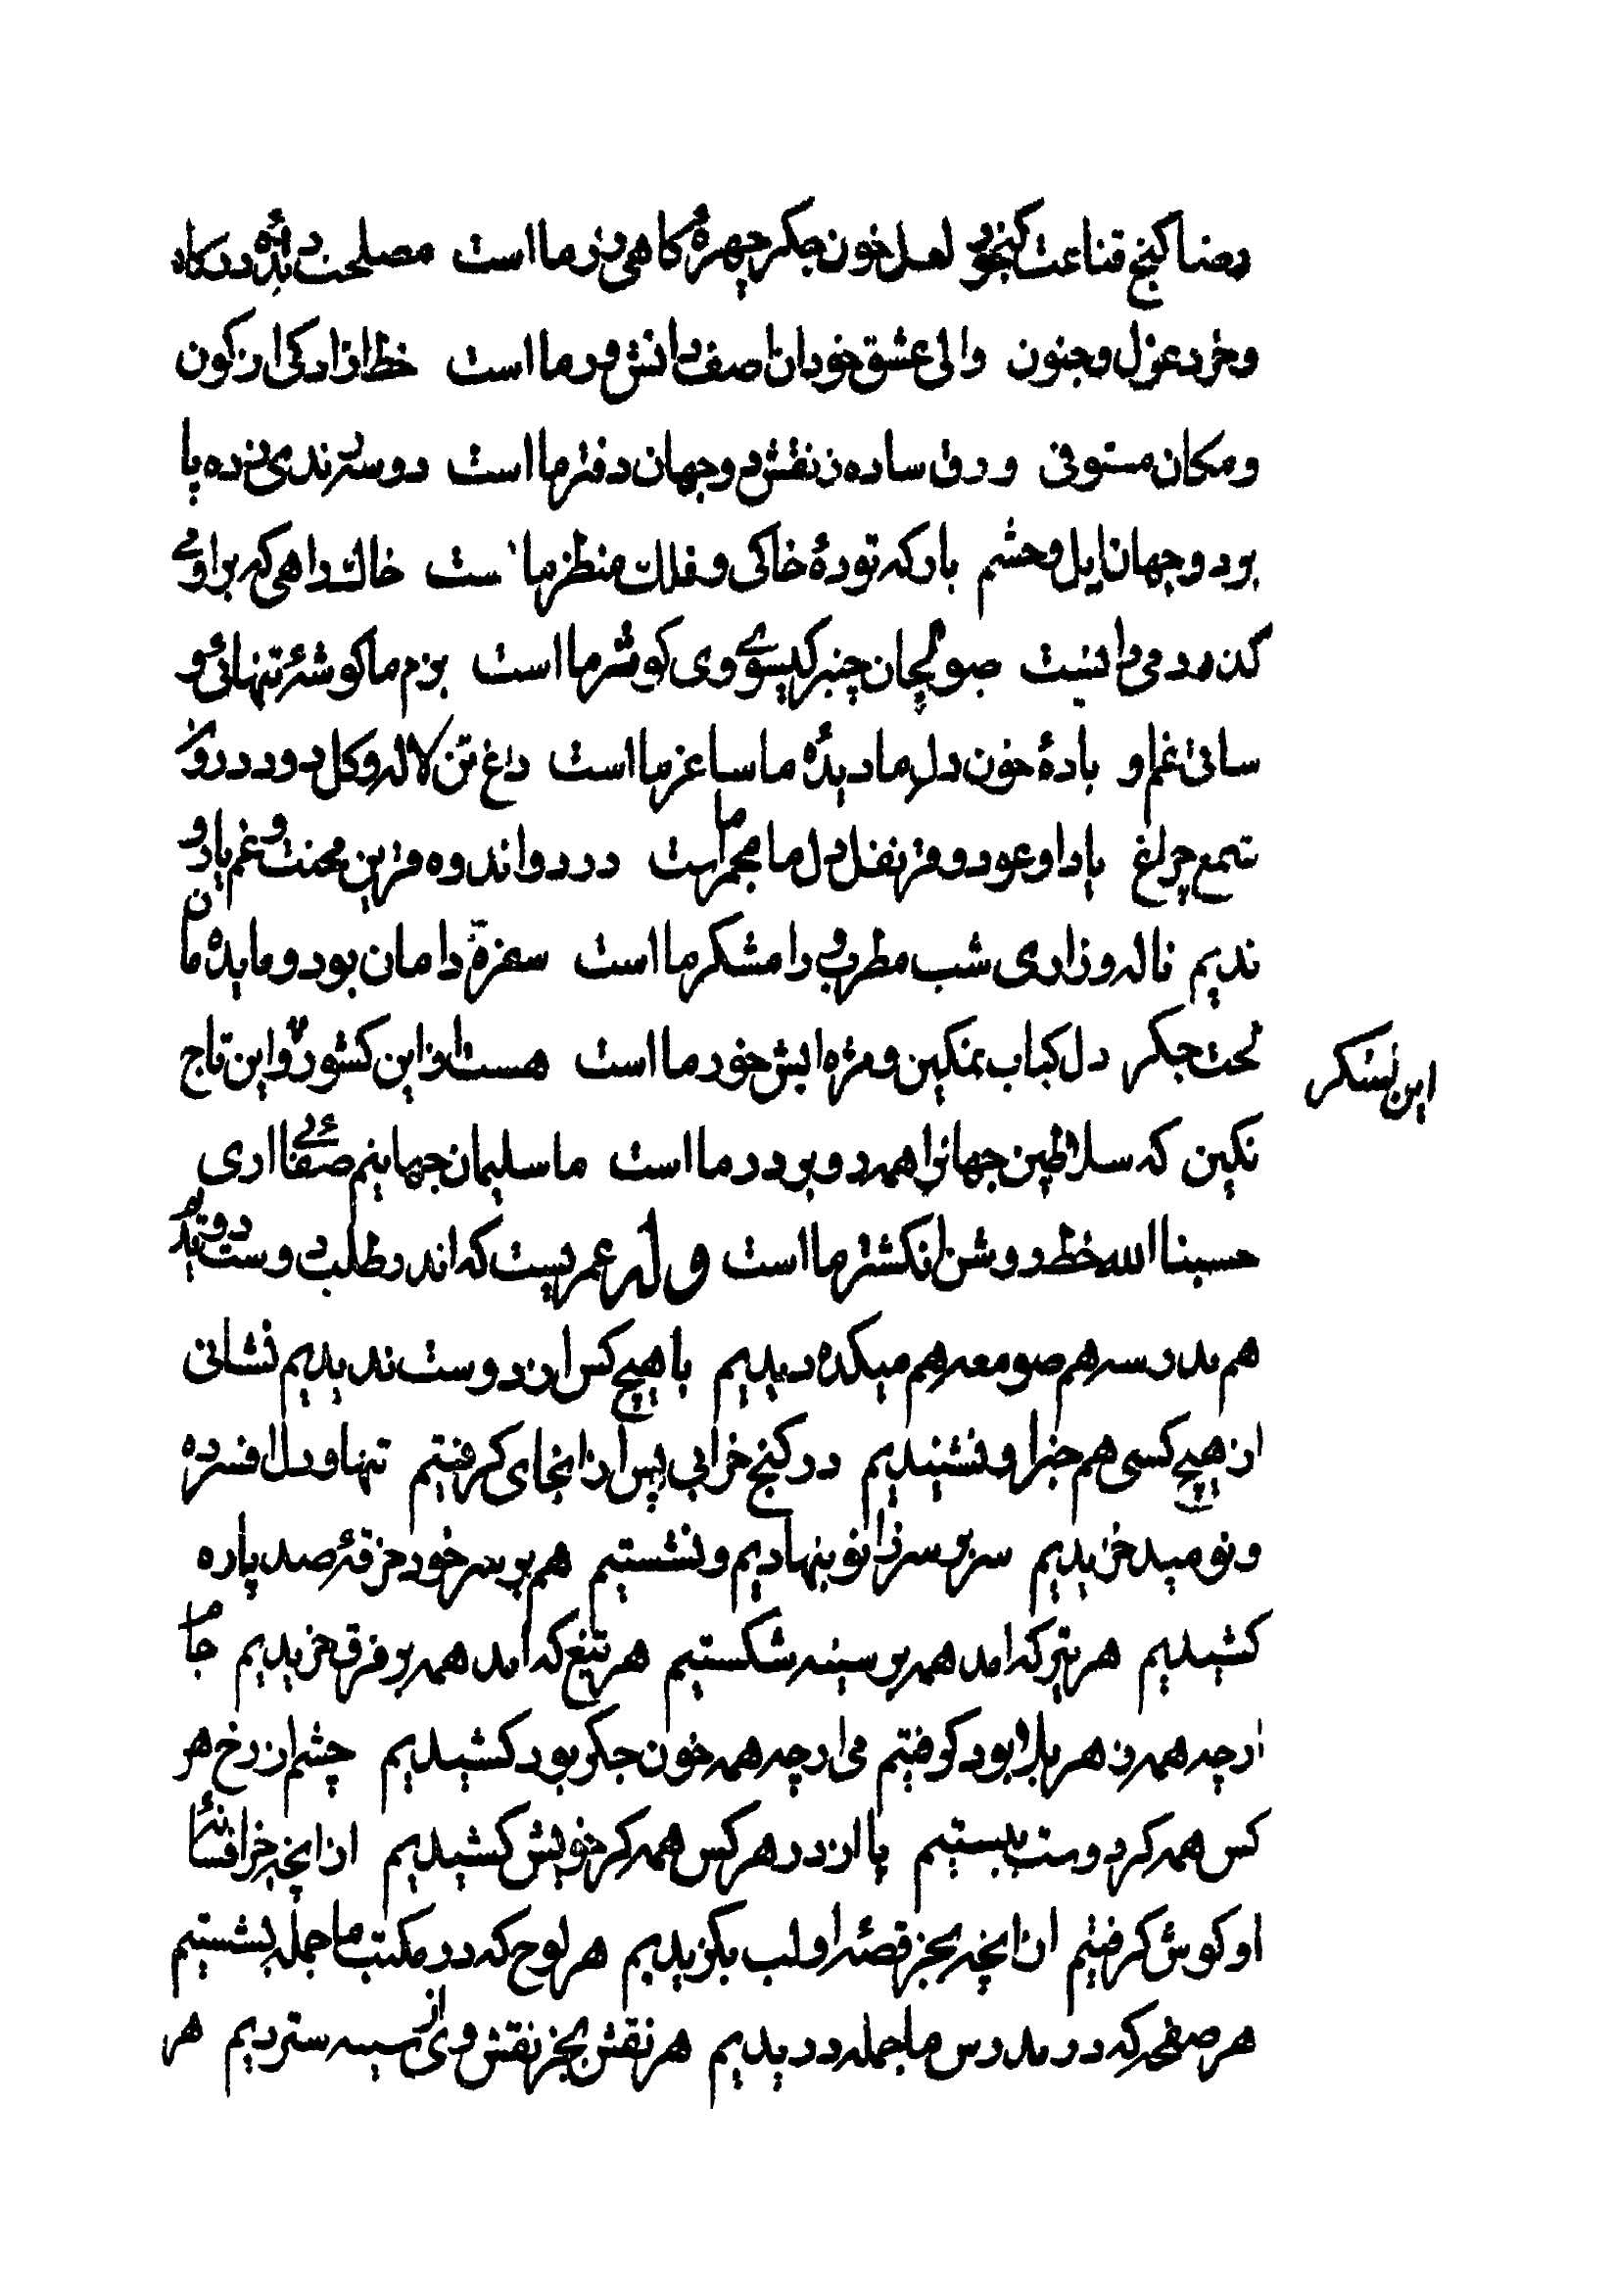 رضا کنج قناعت کنجور لعل خون جکر چهرهٔ کاهی زر ما است مصلحت دیدهٔ درکاه
و خرد عزل و جنون والی عشق خودان اصف دانش ور ما است خط ازادکی از کون
و مکان مستوفی ورق ساده ز نقش دو جهان دفتر ما است دوستر ندی زده پا
بر دو جهان ایل و حشم بارکه تودهٔ خاکی و فلک منظر ما است خاک راهی که بر او می
کذرد می دانیت صولجان چنبر کیسوی وی کوشر ما است بزم ما کوشهٔ تنهائی و
ساقی غم او بادهٔ خون دل ما دیدهٔ ما ساغر ما است داغ تن لاله و کل دود درون
شمع چراغ یاد او عود و قرنفل دل ما مجمر ما است درد و اندوه قرین محنت و غم یار و
ندیم ناله و زاری شب مطرب و رامشکر ما است سفرهٔ دامان بود و مایدهٔ مان
لخت جکر دل کباب نمکین و مژه ابش خور ما است هست از این کشور و این تاج
این لشکر
نکین که سلاطین جهانرا همه رو بر در ما است ما سلیمان جهانیم صفائی اری
حسبنا الله خط روشن انکشتر ما است و له عمریست که اندر طلب دوست دویدیم
هم مدرسه هم صومعه هم میکده دیدیم با هیچ کس از دوست ندیدیم نشانی
از هیچ کسی هم خبر او نشنیدیم در کنج خرابی پس از انجای کرفتیم تنها و دل افسرده
و نومید خزیدیم سر بر سر زانو بنهادیم و نشستیم هم بر سر خود خرقهٔ صد پاره
کشیدیم هر تیر که امد همه بر سینه شکستیم هر تیغ که امد همه بر فرق خریدیم جام
ارچه همه زهر بلا بود کرفتیم می ارچه همه خون جکر بود کشیدیم چشم از رخ هر
کس همه کر دوست ببستیم پا از در هر کس همه کر خویش کشیدیم از انچه جز افسانهٔ
او کوش کرفتیم از انچه بجز قصهٔ او لب بکزیدیم هر لوح که در مکتب ما جمله بشستیم
هر صفحه که در مدرس ما جمله دریدیم هر نقش بجز نقش وی از سینه ستردیم هر